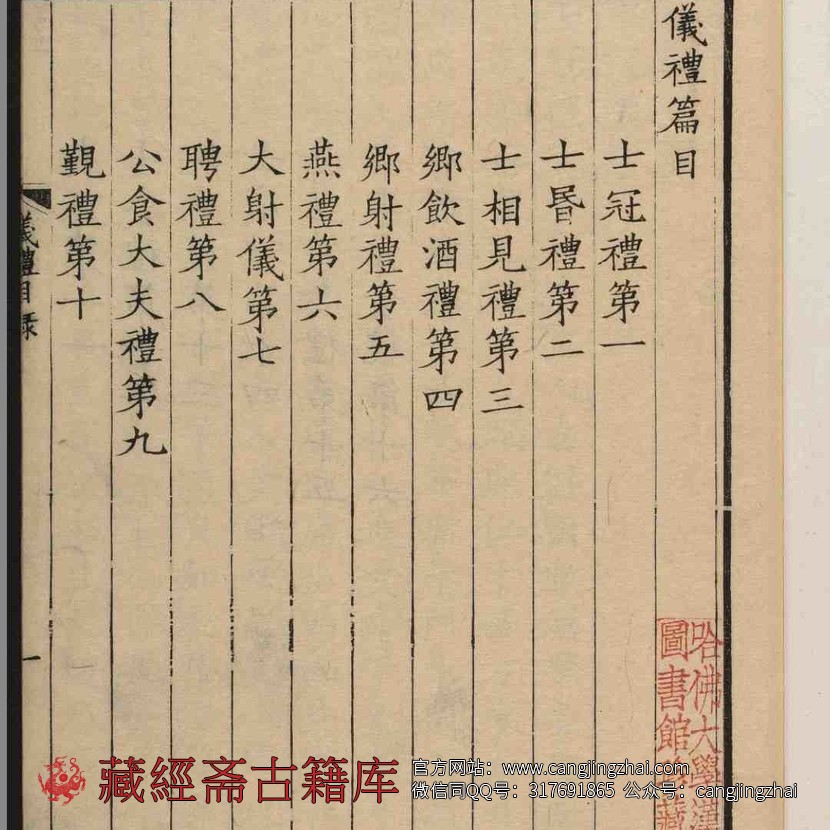 儀禮篇目
士冠禮第一
士昬禮第二
士相見禮第三
鄉飲酒禮第四
鄉射禮第五
燕禮第六
大射儀第七
聘禮第八
公食大夫禮第九
覲禮第十
儀禮目錄
一
哈佛大學漢
圖書館藏
藏經斋古籍库
官方网站：www.cangjingzhai.com
微信同QQ号：317691865 公众号：cangjingzhai